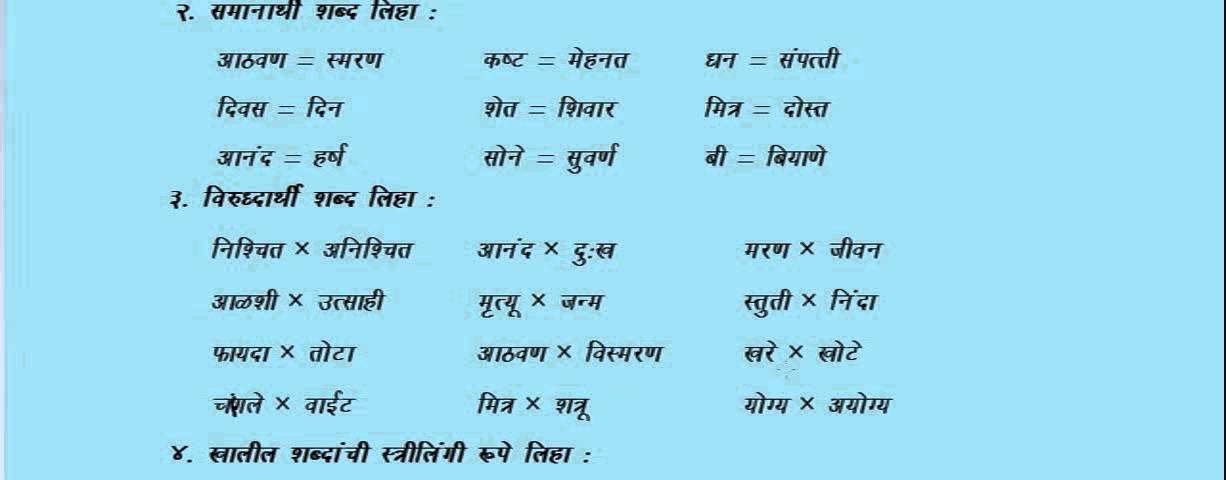 २. समानार्थी शब्द लिहा :
आठवण = स्मरण कष्ट = मेहनत धन = संपत्ती
दिवस = दिन शेत = शिवार मित्र = दोस्त
आनंद = हर्ष सोने = सुवर्ण बी = बियाणे
३. विरुध्दार्थी शब्द लिहा :
निश्चित × अनिश्चित आनंद × दुःख मरण × जीवन
आळशी × उत्साही मृत्यू × जन्म स्तुती × निंदा
फायदा × तोटा आठवण × विस्मरण खरे × खोटे
चांगले × वाईट मित्र × शत्रू योग्य × अयोग्य
४. खालील शब्दांची स्त्रीलिंगी रूपे लिहा :